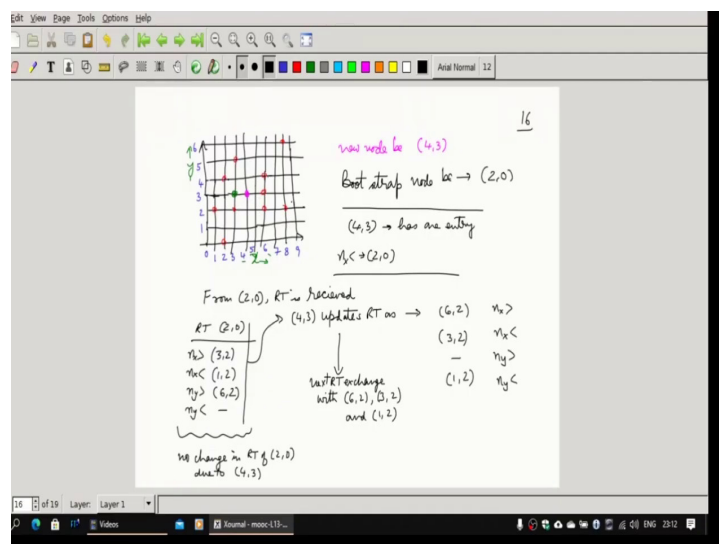 Edit View Page Tools Options Help
T
Arial Normal 12
16
new node be (4,3)
Boot strap node be → (2,0)
(4,3) → has one entry
nx< → (2,0)
y
6
5
4
3
2
1
0 1 2 3 4 5 6 7 8 9
x→
From (2,0), RT is recieved
RT (2,0)
nx> (3,2)
nx< (1,2)
ny> (6,2)
ny< -
no change in RT of (2,0)
due to (4,3)
(4,3) updates RT as → (6,2) nx>
(3,2) nx<
- ny>
(1,2) ny<
next RT exchange
with (6,2), (3,2)
and (1,2)
16 of 19 Layer: Layer 1
Videos
Xournal - mooc-L13-...
ENG 23:12